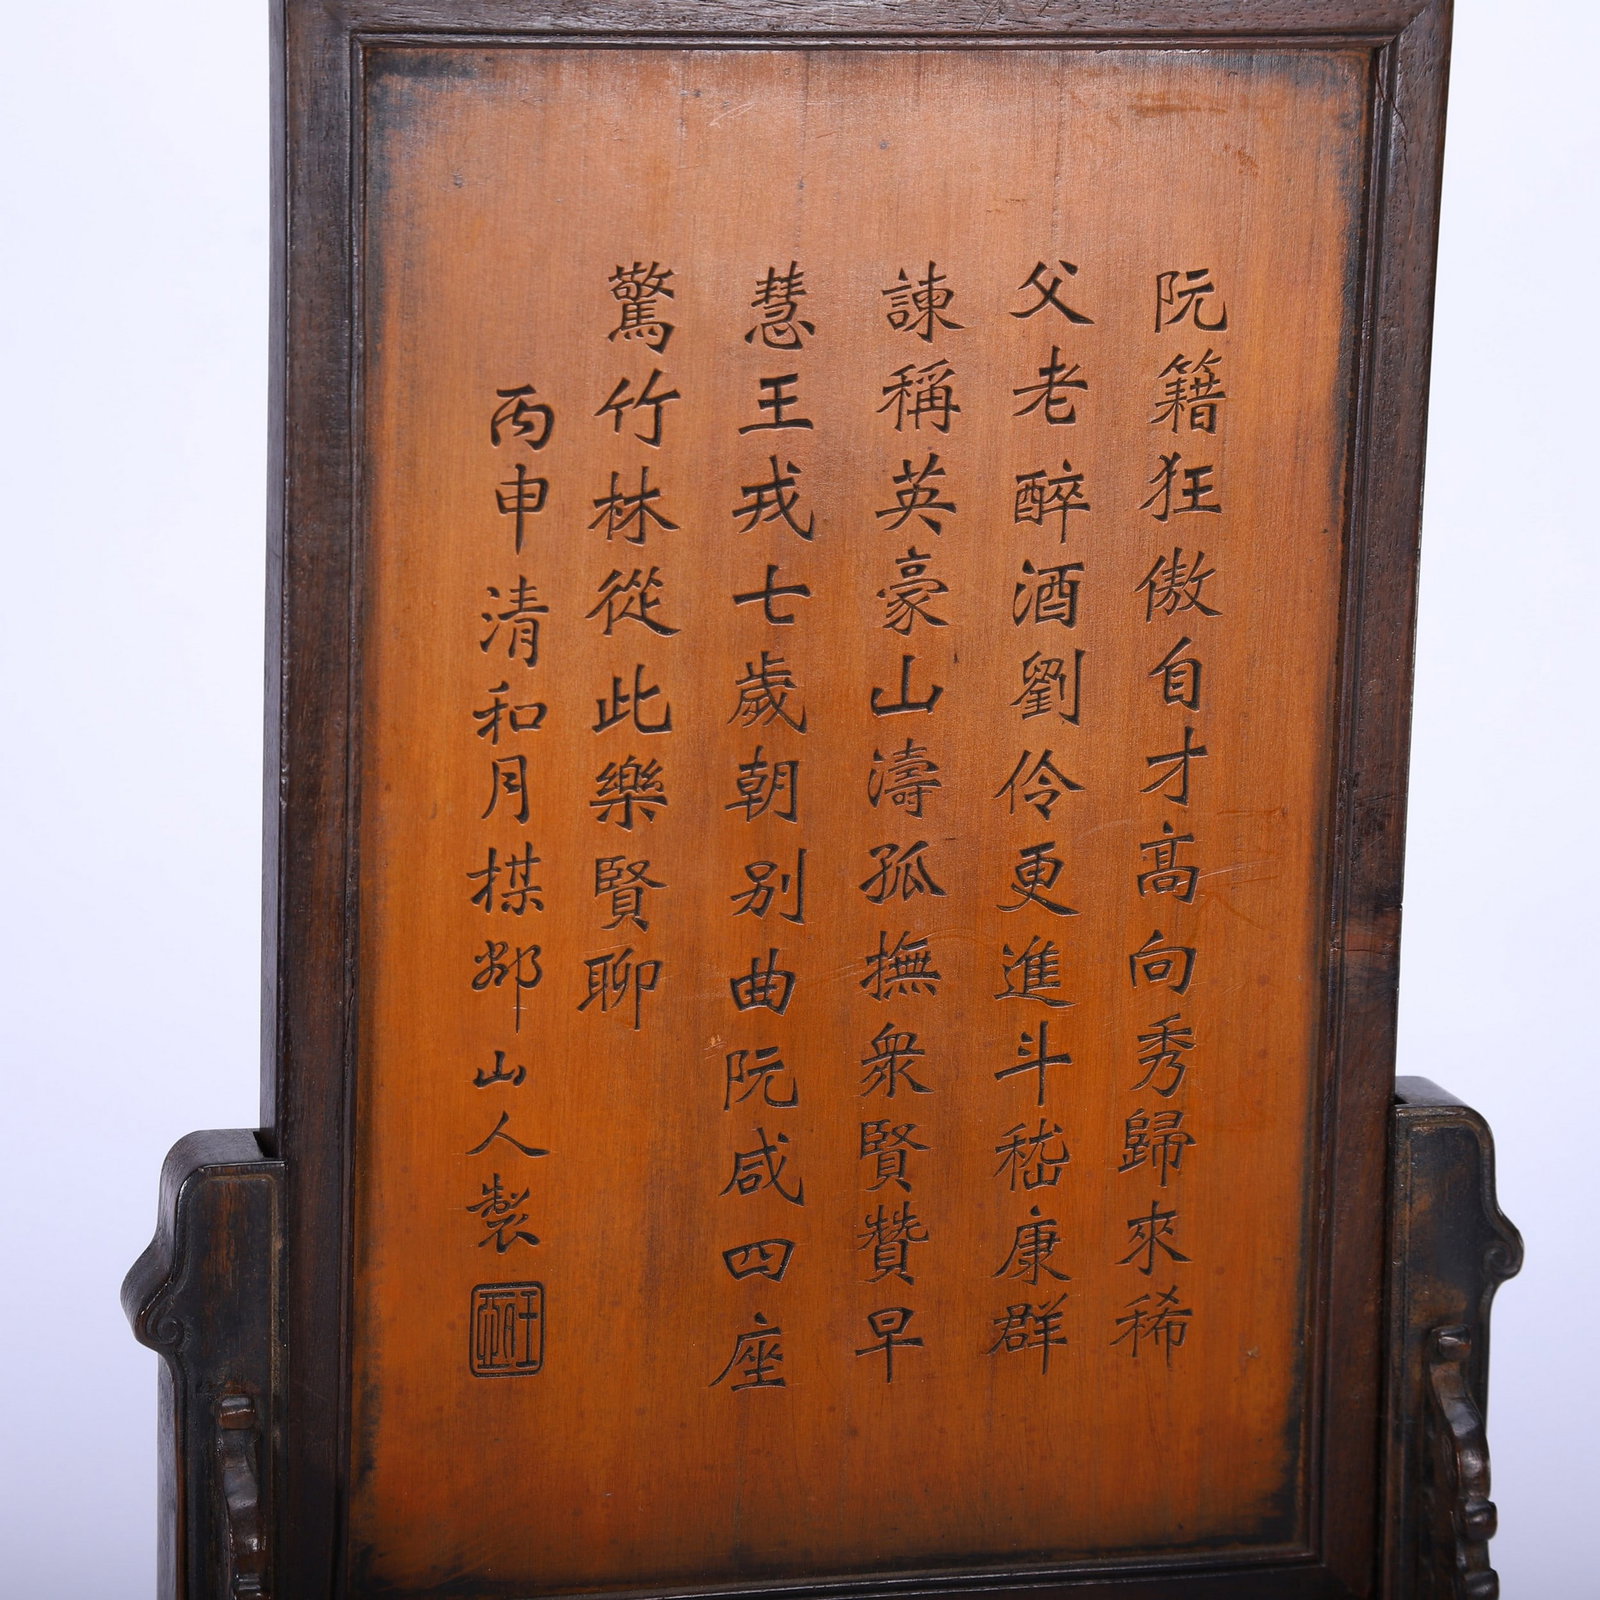 阮籍狂傲自才高向秀歸來稀
父老醉酒劉伶更進斗嵇康群
諫稱英豪山濤孤撫衆賢贊早
慧王戎七歲朝別曲阮咸四座
驚竹林從此樂賢聊
丙申清和月楳鄰山人製